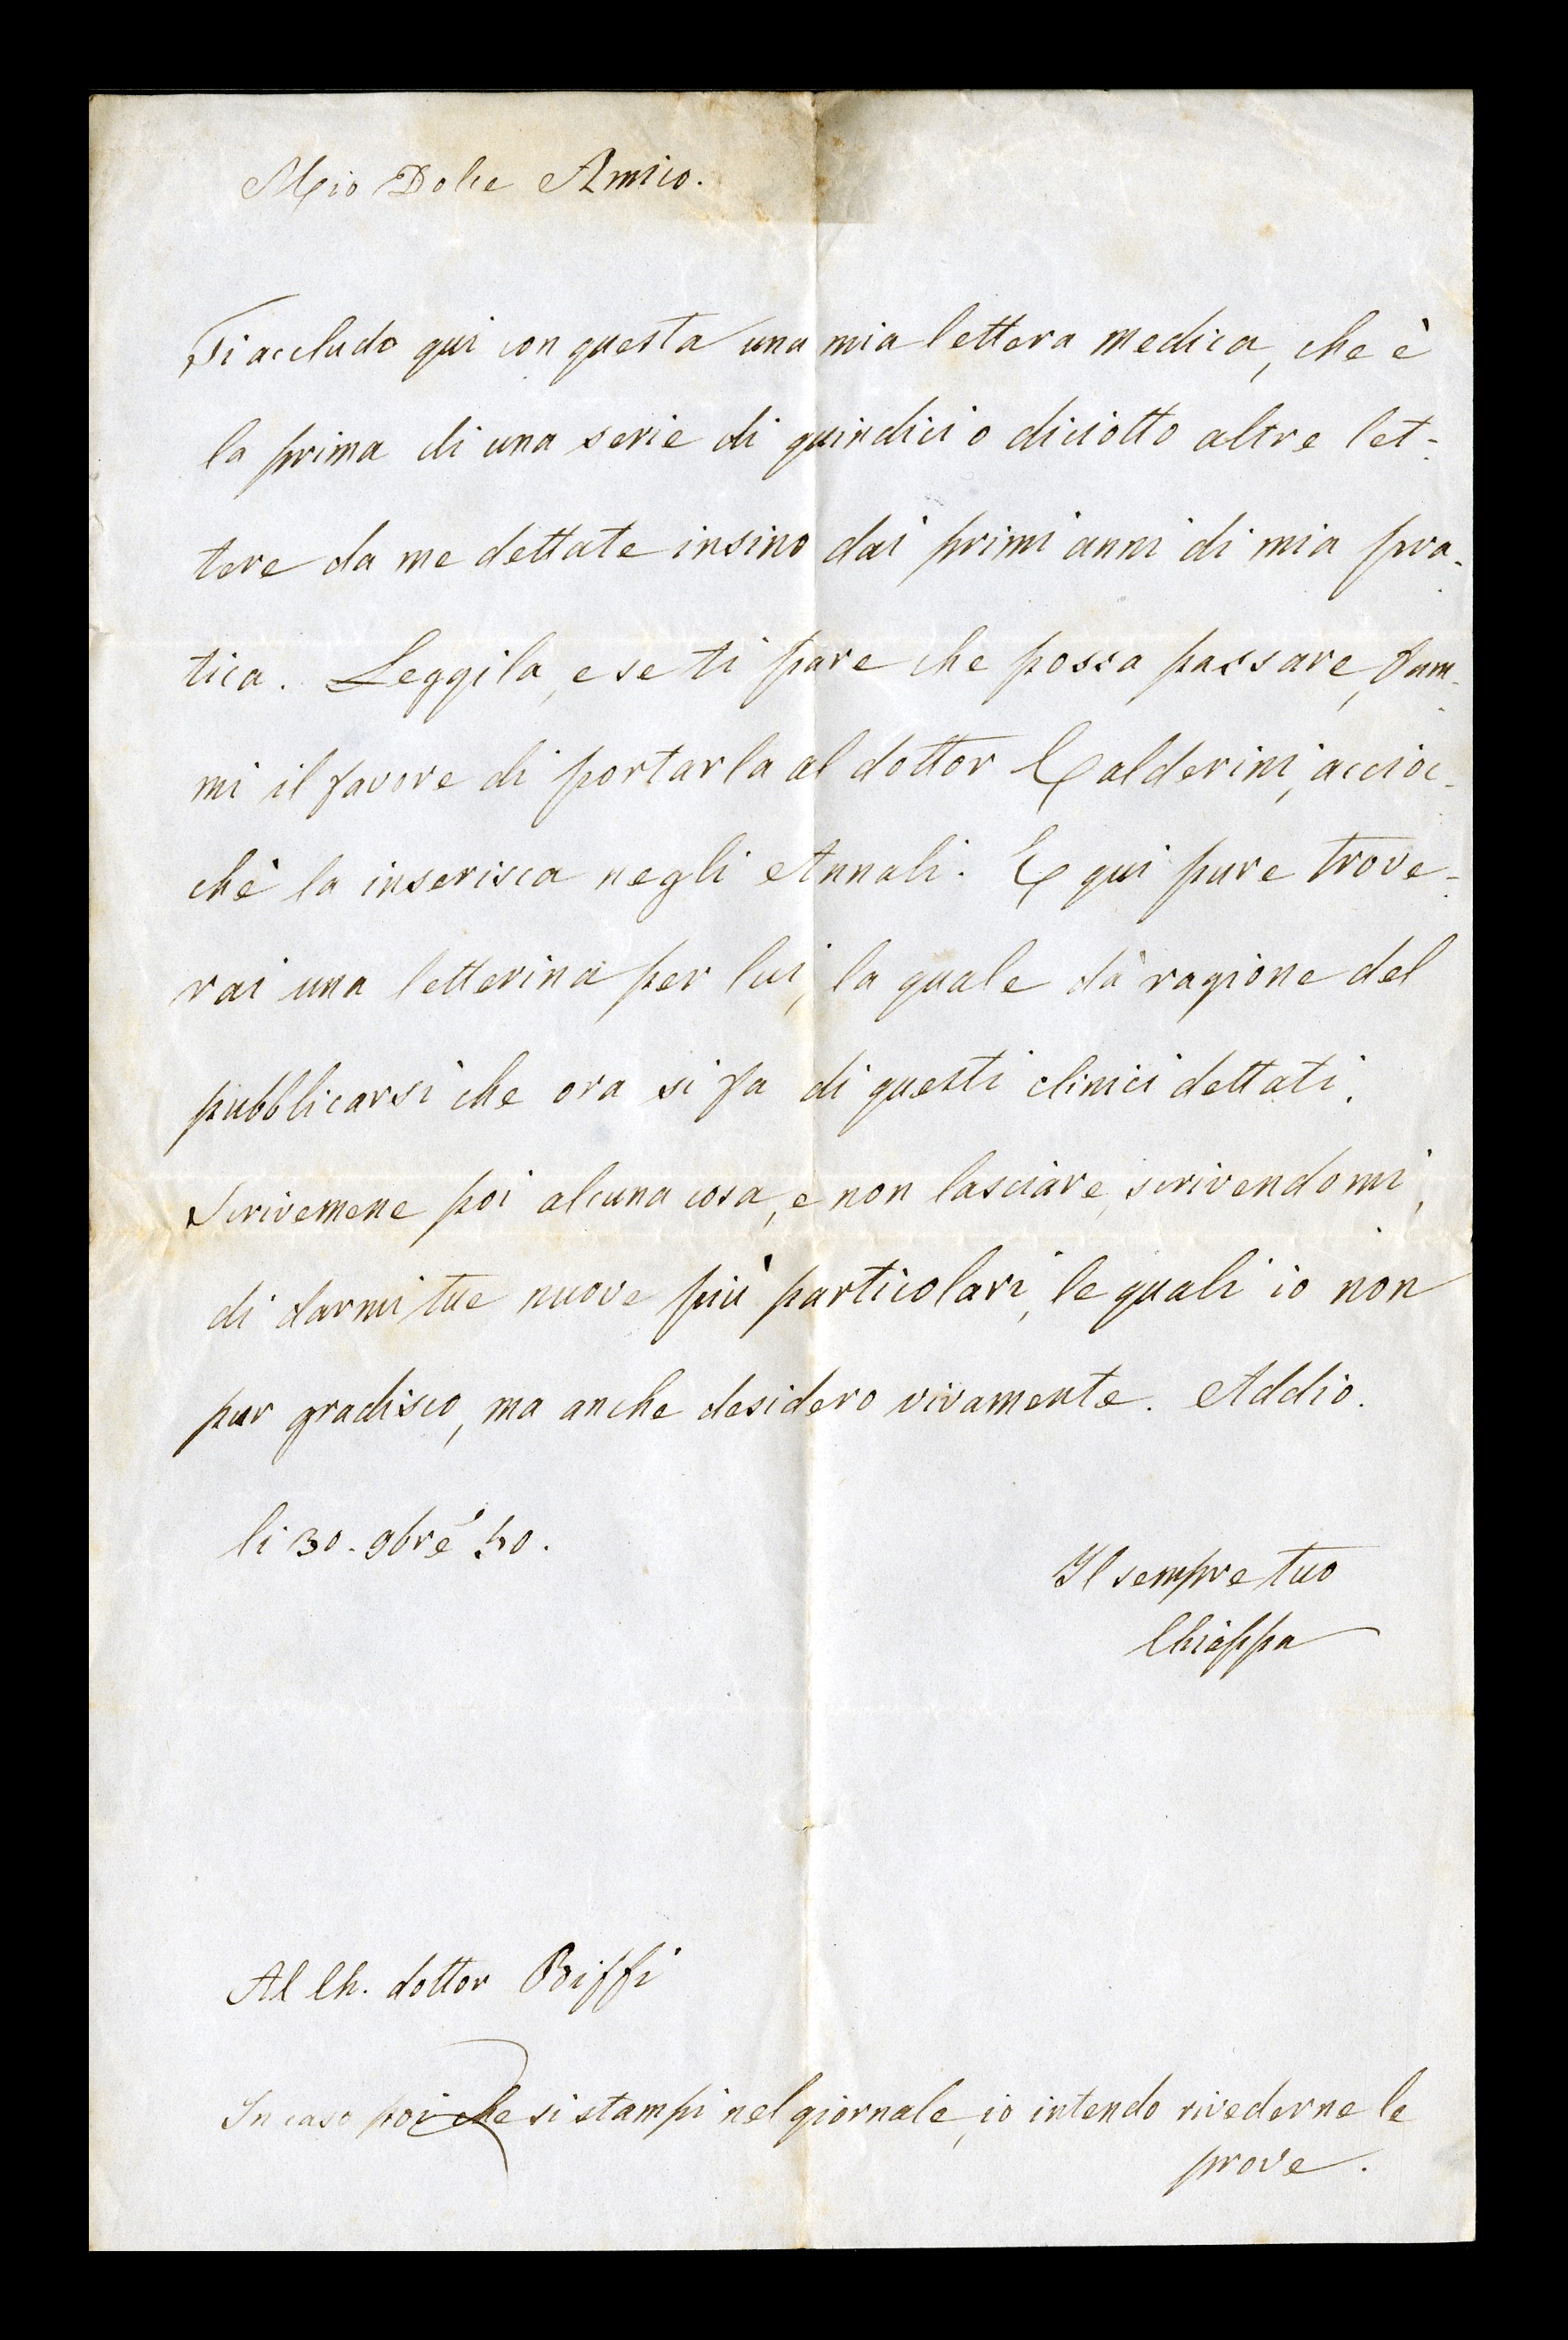 Mio Dolce Amico.
Ti accludo qui con questa una mia lettera medica, che è
la prima di una serie di quindici o diciotto altre let-
tere da me dettate insino dai primi anni di mia pra-
tica. Leggila, e se ti pare che possa passare, fam-
mi il favore di portarla al dottor Calderini, accioc-
chè la inserisca negli Annali. E qui pure trove-
rai una letterina per lui, la quale dà ragione del
pubblicarsi che ora si fa di questi clinici dettati.
Scrivemene poi alcuna cosa, e non lasciare, scrivendomi,
di darmi tue nuove più particolari, le quali io non
pur gradisco, ma anche desidero vivamente. Addio.
li 30. 9bre 50.
Il sempre tuo
Chiappa
Al Ch. dottor Biffi
In caso poi che si stampi nel giornale, io intendo rivederne le
prove.